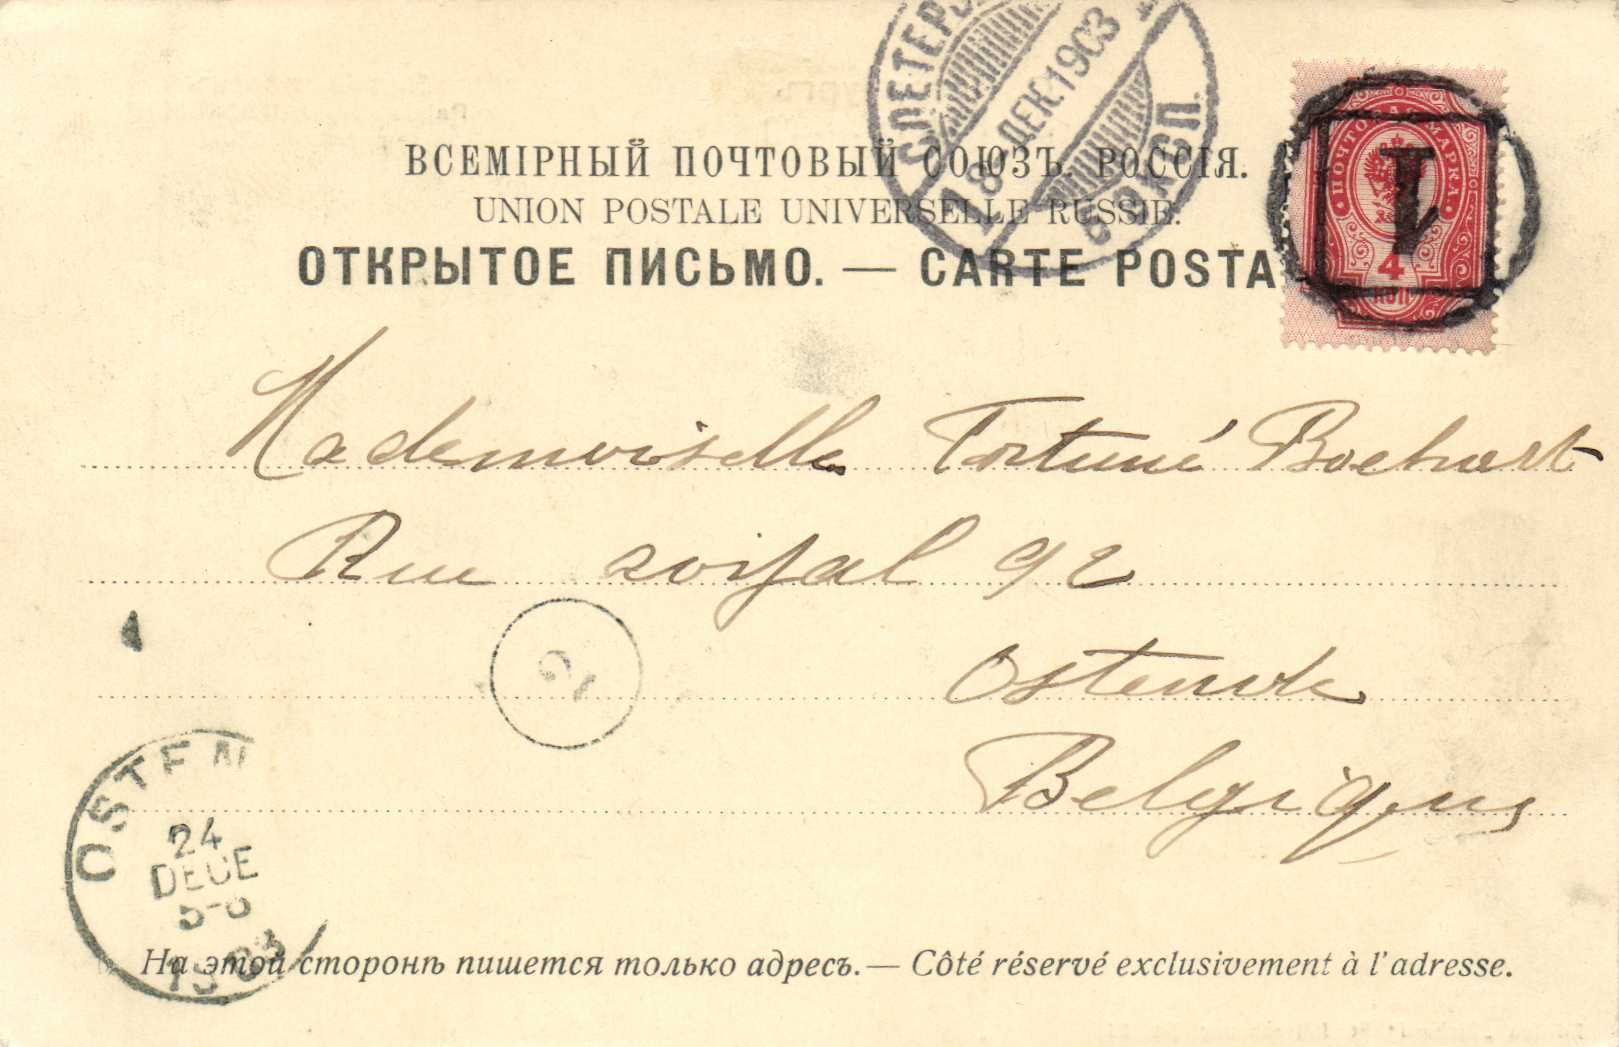 С.ПЕТЕРБ
18 ДЕК.1903
6 ЭКСП.
ПОЧТОВАЯ МАРКА.
1
4
КОП
ВСЕМІРНЫЙ ПОЧТОВЫЙ СОЮЗЪ. РОССІЯ.
UNION POSTALE UNIVERSELLE RUSSIE.
ОТКРЫТОЕ ПИСЬМО. — CARTE POSTA
Mademoiselle Fortuné
Rue royal 92
Ostende
Belgique
OSTEN
24
DECE
5-6
1903
На этой сторонѣ пишется только адресъ. — Côté réservé exclusivement à l'adresse.